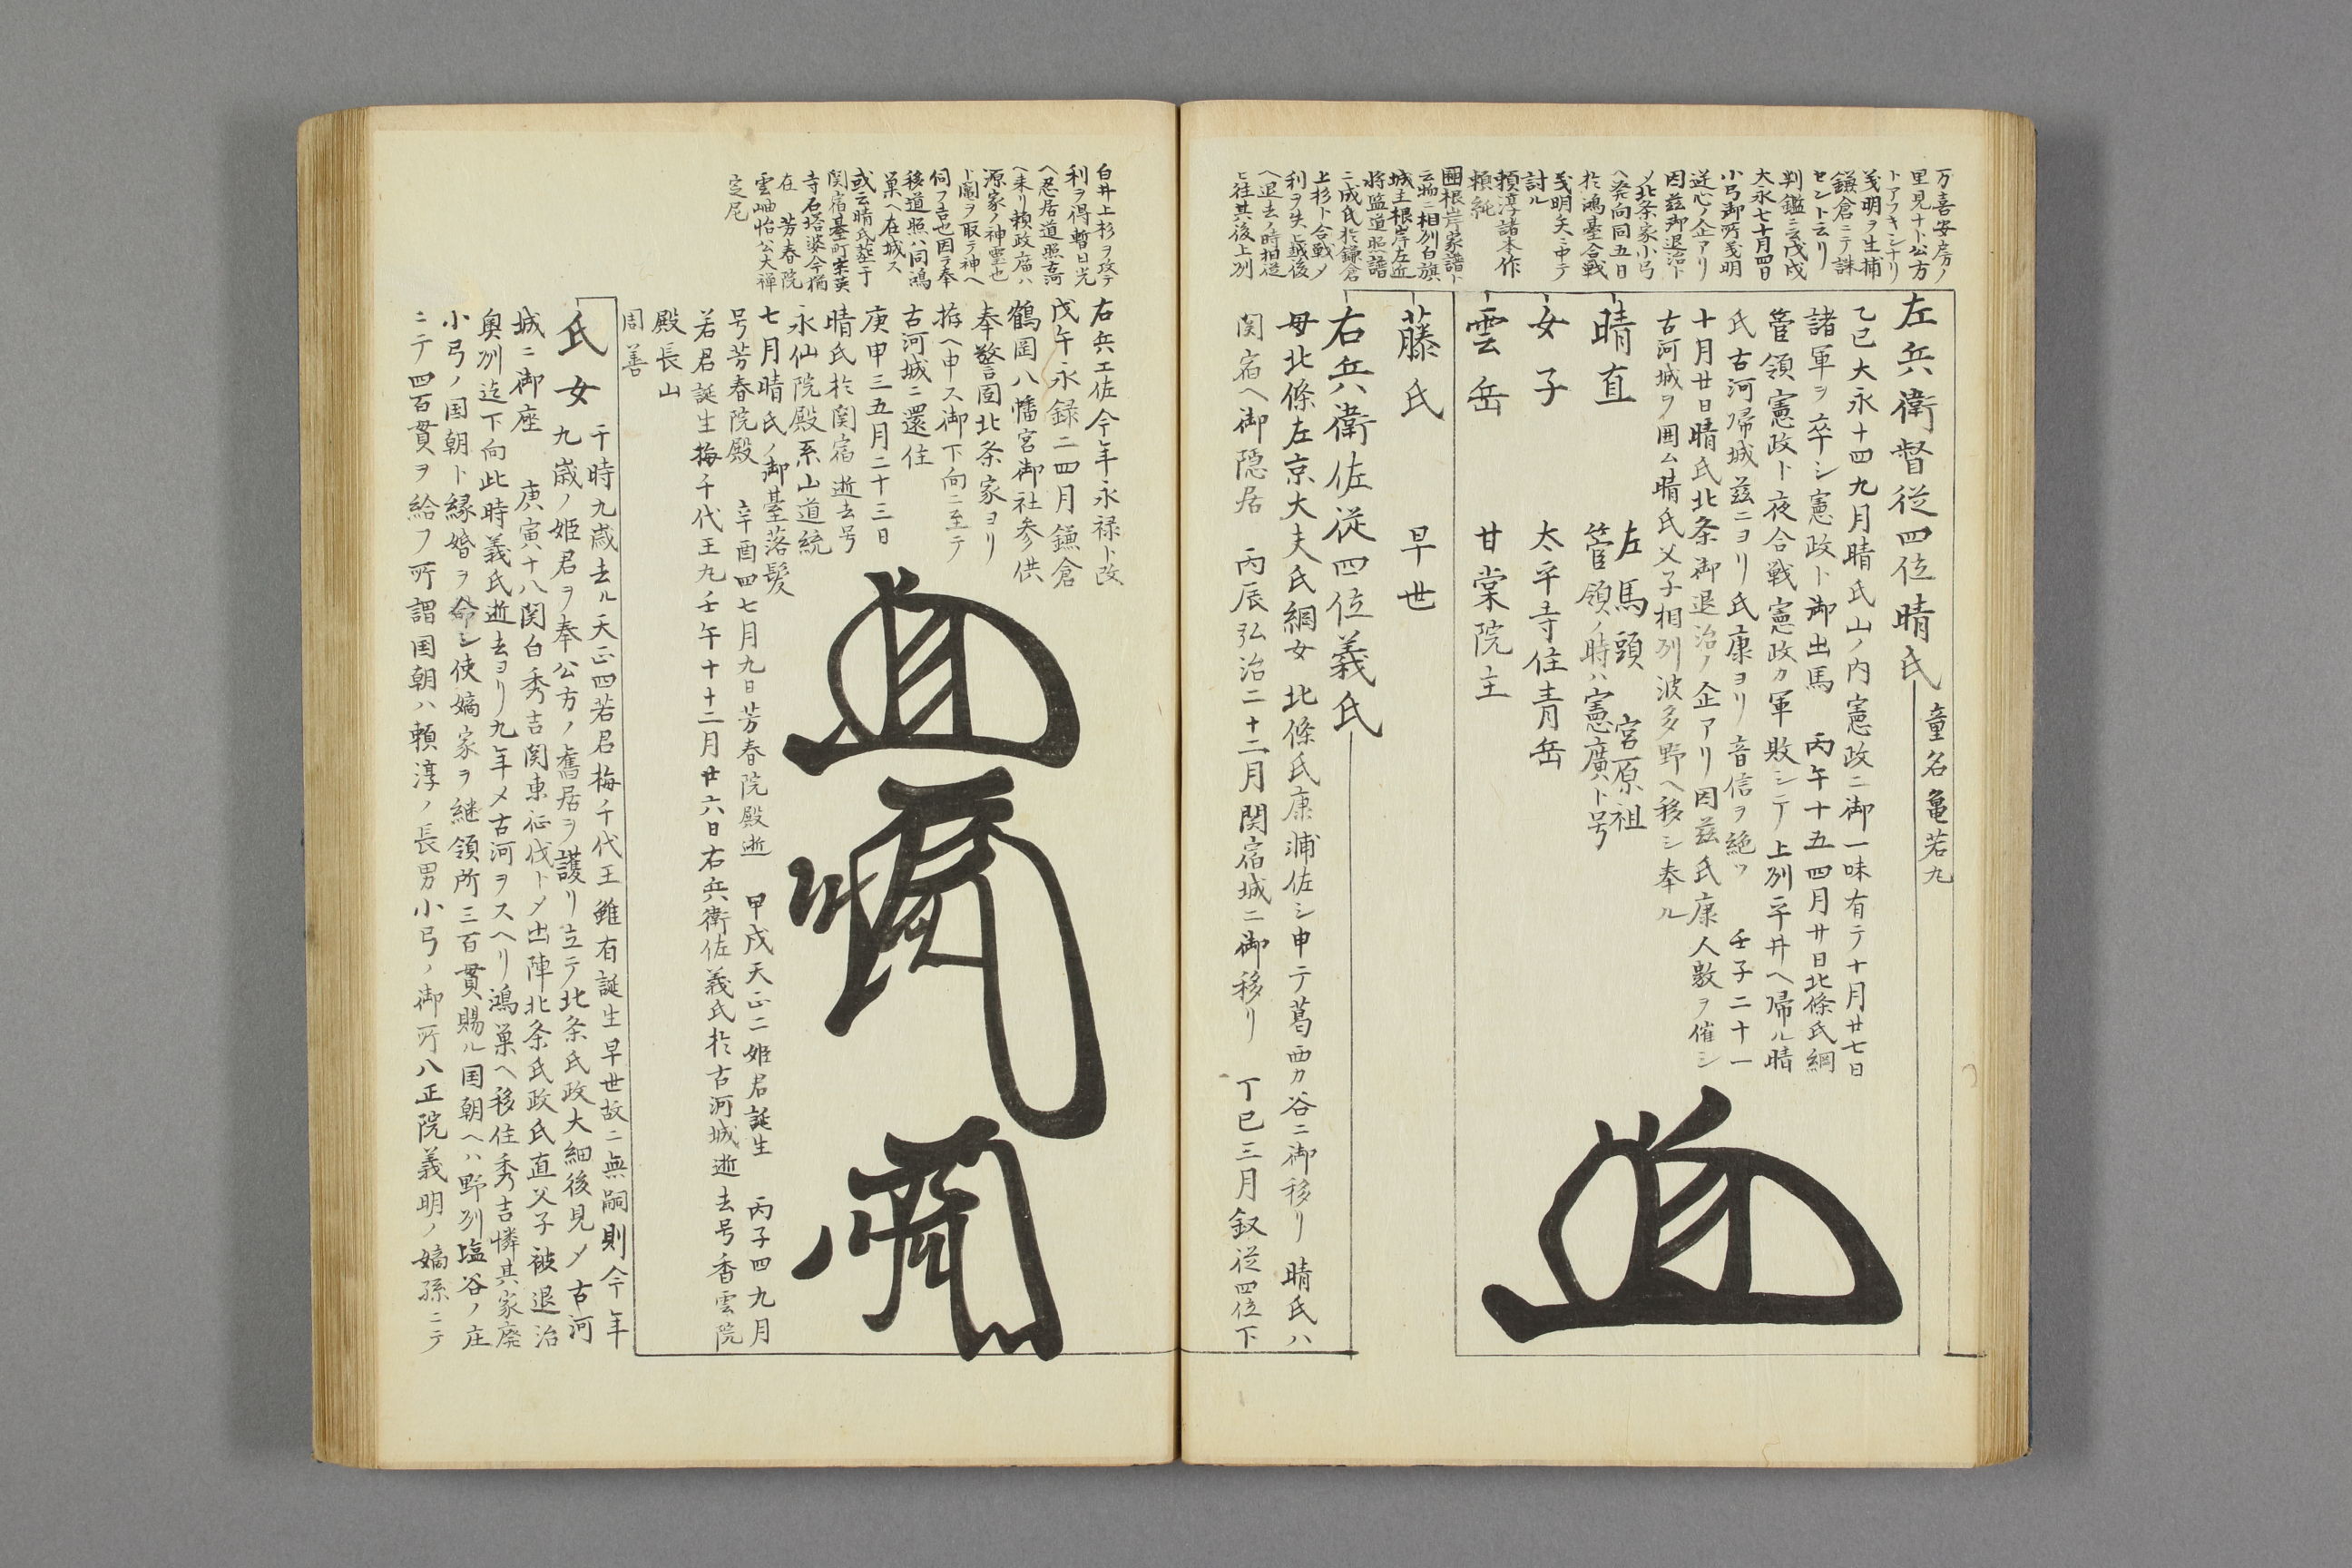 万喜安房ノ
里見ナト公方
トアフキシナリ
義明ヲ生捕
鎌倉ニテ誅
セント云リ
判鑑ニ云戊戌
大永七十月四日
小弓御所義明
逆心ノ企アリ
因茲御退治ト
〆北条家小弓
ヘ発向同五日
於鴻臺合戦
義明矢ニ中テ
討ル
頼淳諸本作
頼純
圏根岸家譜ト
云物ニ相列白旗
城主根岸左近
将監道照譜
ニ成氏於鎌倉
上杉ト合戦〆
利ヲ失ヒ越後
ヘ退去ノ時相従
ヒ往其後上列
左兵衛督従四位晴氏 童名亀若丸
乙巳大永十四九月晴氏山ノ内憲政ニ御一味有テ十月廿七日
諸軍ヲ卒シ憲政ト御出馬 丙午十五四月廿日北條氏綱
管領憲政ト夜合戦憲政カ軍敗シテ上列平井ヘ帰ル晴
氏古河帰城茲ニヨリ氏康ヨリ音信ヲ絶ツ 壬子二十一
十月廿日晴氏北条御退治ノ企アリ因茲氏康人数ヲ催シ
古河城ヲ囲ム晴氏父子相列波多野ヘ移シ奉ル
晴直 左馬頭 宮原祖
管領ノ時ハ憲廣ト号
女子 太平寺住青岳
雲岳 甘棠院主
藤氏 早世
右兵衛佐従四位義氏
母北條左京大夫氏綱女 北條氏康浦佐シ申テ葛西カ谷ニ御移リ 晴氏ハ
関宿ヘ御隠居 丙辰弘治二十二月関宿城ニ御移リ 丁巳三月叙従四位下
白井上杉ヲ攻テ
利ヲ得暫日光
ヘ忍居道照古河
ヘ来リ頼政庿ハ
源家ノ神霊也
ト鬮ヲ取テ神ヘ
伺フ吉也因テ奉
移道照ハ同鴻
巣ヘ在城ス
或云晴氏葬于
関宿臺町宗英
寺石塔婆今猶
在 芳春院
雲岫怡公大禅
定尼
右兵工佐今年永禄ト改
戊午永録二四月鎌倉
鶴岡八幡宮御社参供
奉警固北条家ヨリ
拵ヘ申ス御下向ニ至テ
古河城ニ還住
庚申三五月二十三日
晴氏於関宿逝去号
永仙院殿系山道統
七月晴氏ノ御臺落髪
号芳春院殿 辛酉四七月九日芳春院殿逝 甲戌天正二姫君誕生 丙子四九月
若君誕生梅千代王丸壬午十十二月廿六日右兵衛佐義氏於古河城逝去号香雲院
殿長山
周善
氏女 干時九歳去ル天正四若君梅千代王雖有誕生早世故ニ無嗣則今年
九歳ノ姫君ヲ奉公方ノ舊居ヲ護リ立テ北条氏政大細後見〆古河
城ニ御座 庚寅十八関白秀吉関東征伐ト〆出陣北条氏政氏直父子被退治
奥列迄下向此時義氏逝去ヨリ九年〆古河ヲスヘリ鴻巣ヘ移住秀吉憐其家廃
小弓ノ国朝ト縁婚ヲ命シ使嫡家ヲ継領所三百貫賜ル国朝ヘハ野列塩谷ノ庄
ニテ四百貫ヲ給フ所謂国朝ハ頼淳ノ長男小弓ノ御所八正院義明ノ嫡孫ニテ